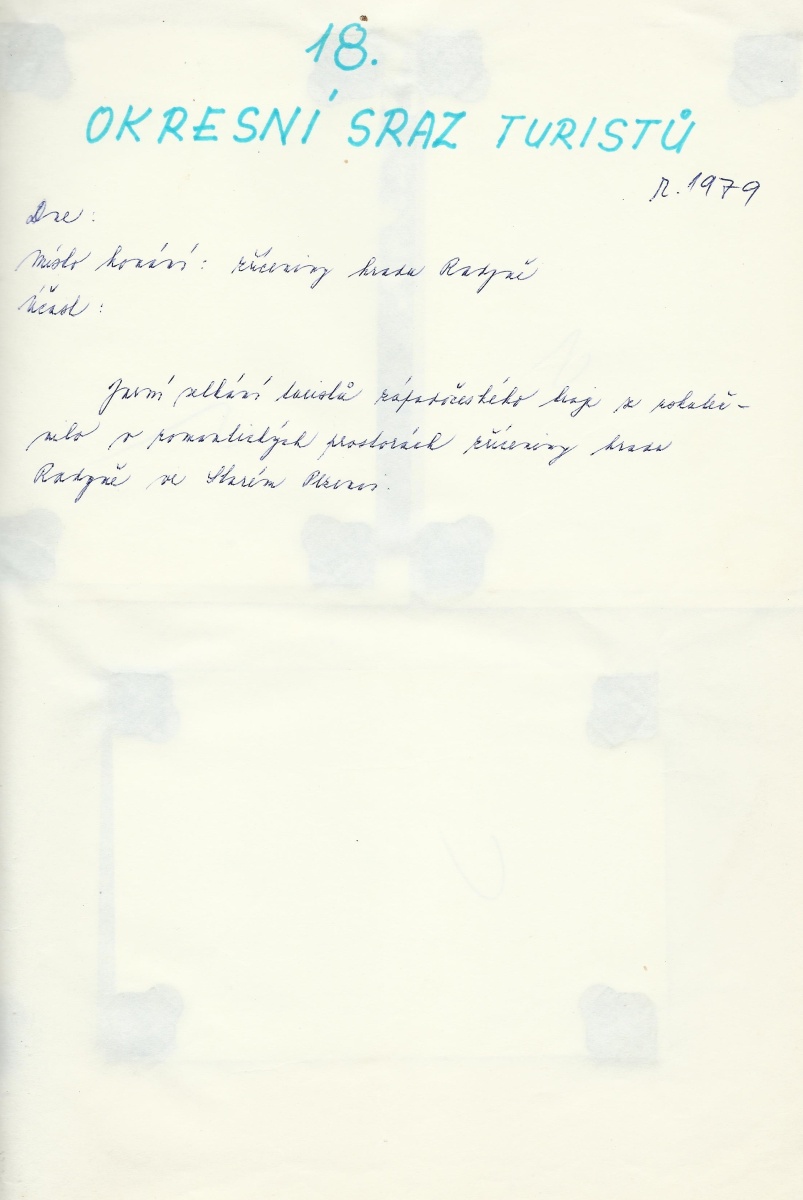 18.
OKRESNÍ SRAZ TURISTŮ
r. 1979
Dne:
Místo konání: zříceniny hradu Radyně
Účast:
Jarní setkání turistů západočeského kraje se uskuteč-
nilo v romantických prostorách zříceniny hradu
Radyně ve Starém Plzenci.